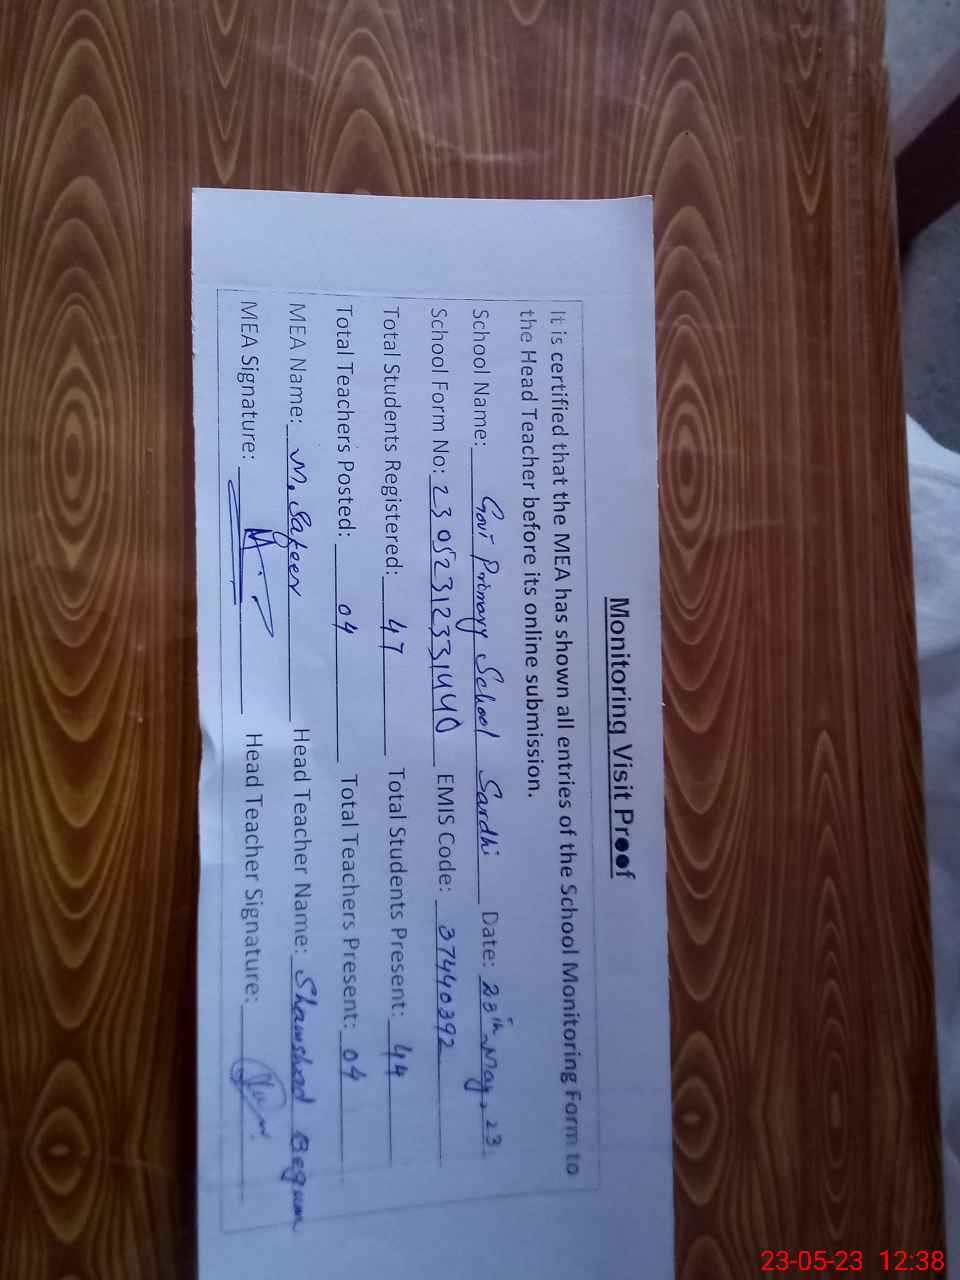 Monitoring Visit Proof
It is certified that the MEA has shown all entries of the School Monitoring Form to
the Head Teacher before its online submission.
School Name: Govt Primary School Sardhi Date: 23th May, 23
School Form No: 23052312331440 EMIS Code: 37440392
Total Students Registered: 47 Total Students Present: 44
Total Teachers Posted: 04 Total Teachers Present: 04
MEA Name: M. Safeer Head Teacher Name: Shamshad Begum
MEA Signature: Head Teacher Signature:
23-05-23 12:38